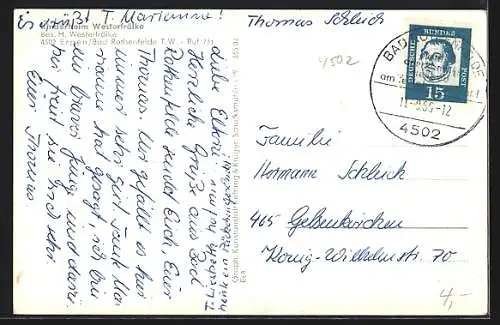 Es grüßt T. Marianne!
Thomas Schlich
Westerfrölke
Bes. H. Westerfrölke
4502 Erpen/Bad Rothenfelde T.W. - Ruf 7/1
Liebe Eltern!
Herzliche Grüße aus Bad
Rothenfelde sendet Euch, Euer
Thomas. Mir gefällt es hier
immer sehr gut. Tante Ma-
rianne hat gesagt, ich bin
ein braver Junge und darü-
ber freut sie sich sehr.
Euer Thomas
4502
DEUTSCHE BUNDESPOST
15
BAD
am
-12
4502
Familie
Hermann Schlich
465 Gelsenkirchen
König-Wilhelmstr. 70
4,-